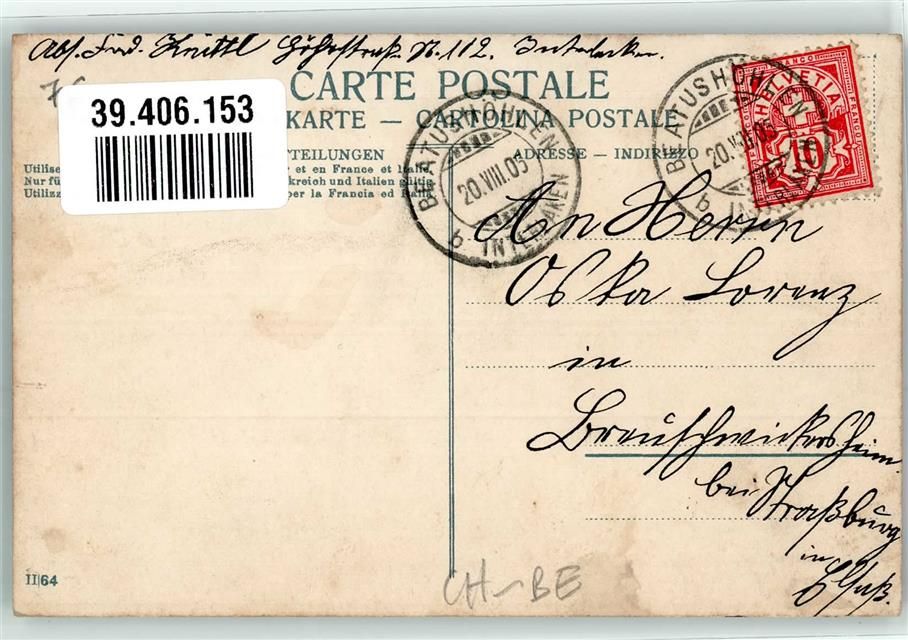 Abs. Ferd. Knittl Höhestraße N. 112. Interlaken.
CARTE POSTALE
39.406.153
KARTE — CARTOLINA POSTALE
TTEILUNGEN
ADRESSE — INDIRIZZO
Utilise
r et en France et Italie
Nur fü
kreich und Italien giltig
Utiliz
per la Francia ed Italia
BEATUSHÖHLEN
20.VIII.05
b. INTERLAKEN
BEATUSHÖHLEN
20.VIII.05
b. INTERLAKEN
FRANCO
HELVETIA
10
An Herrn
Oska Lorenz
in
Breuschwickersheim
bei Straßburg
in Elsaß.
II|64
CH-BE